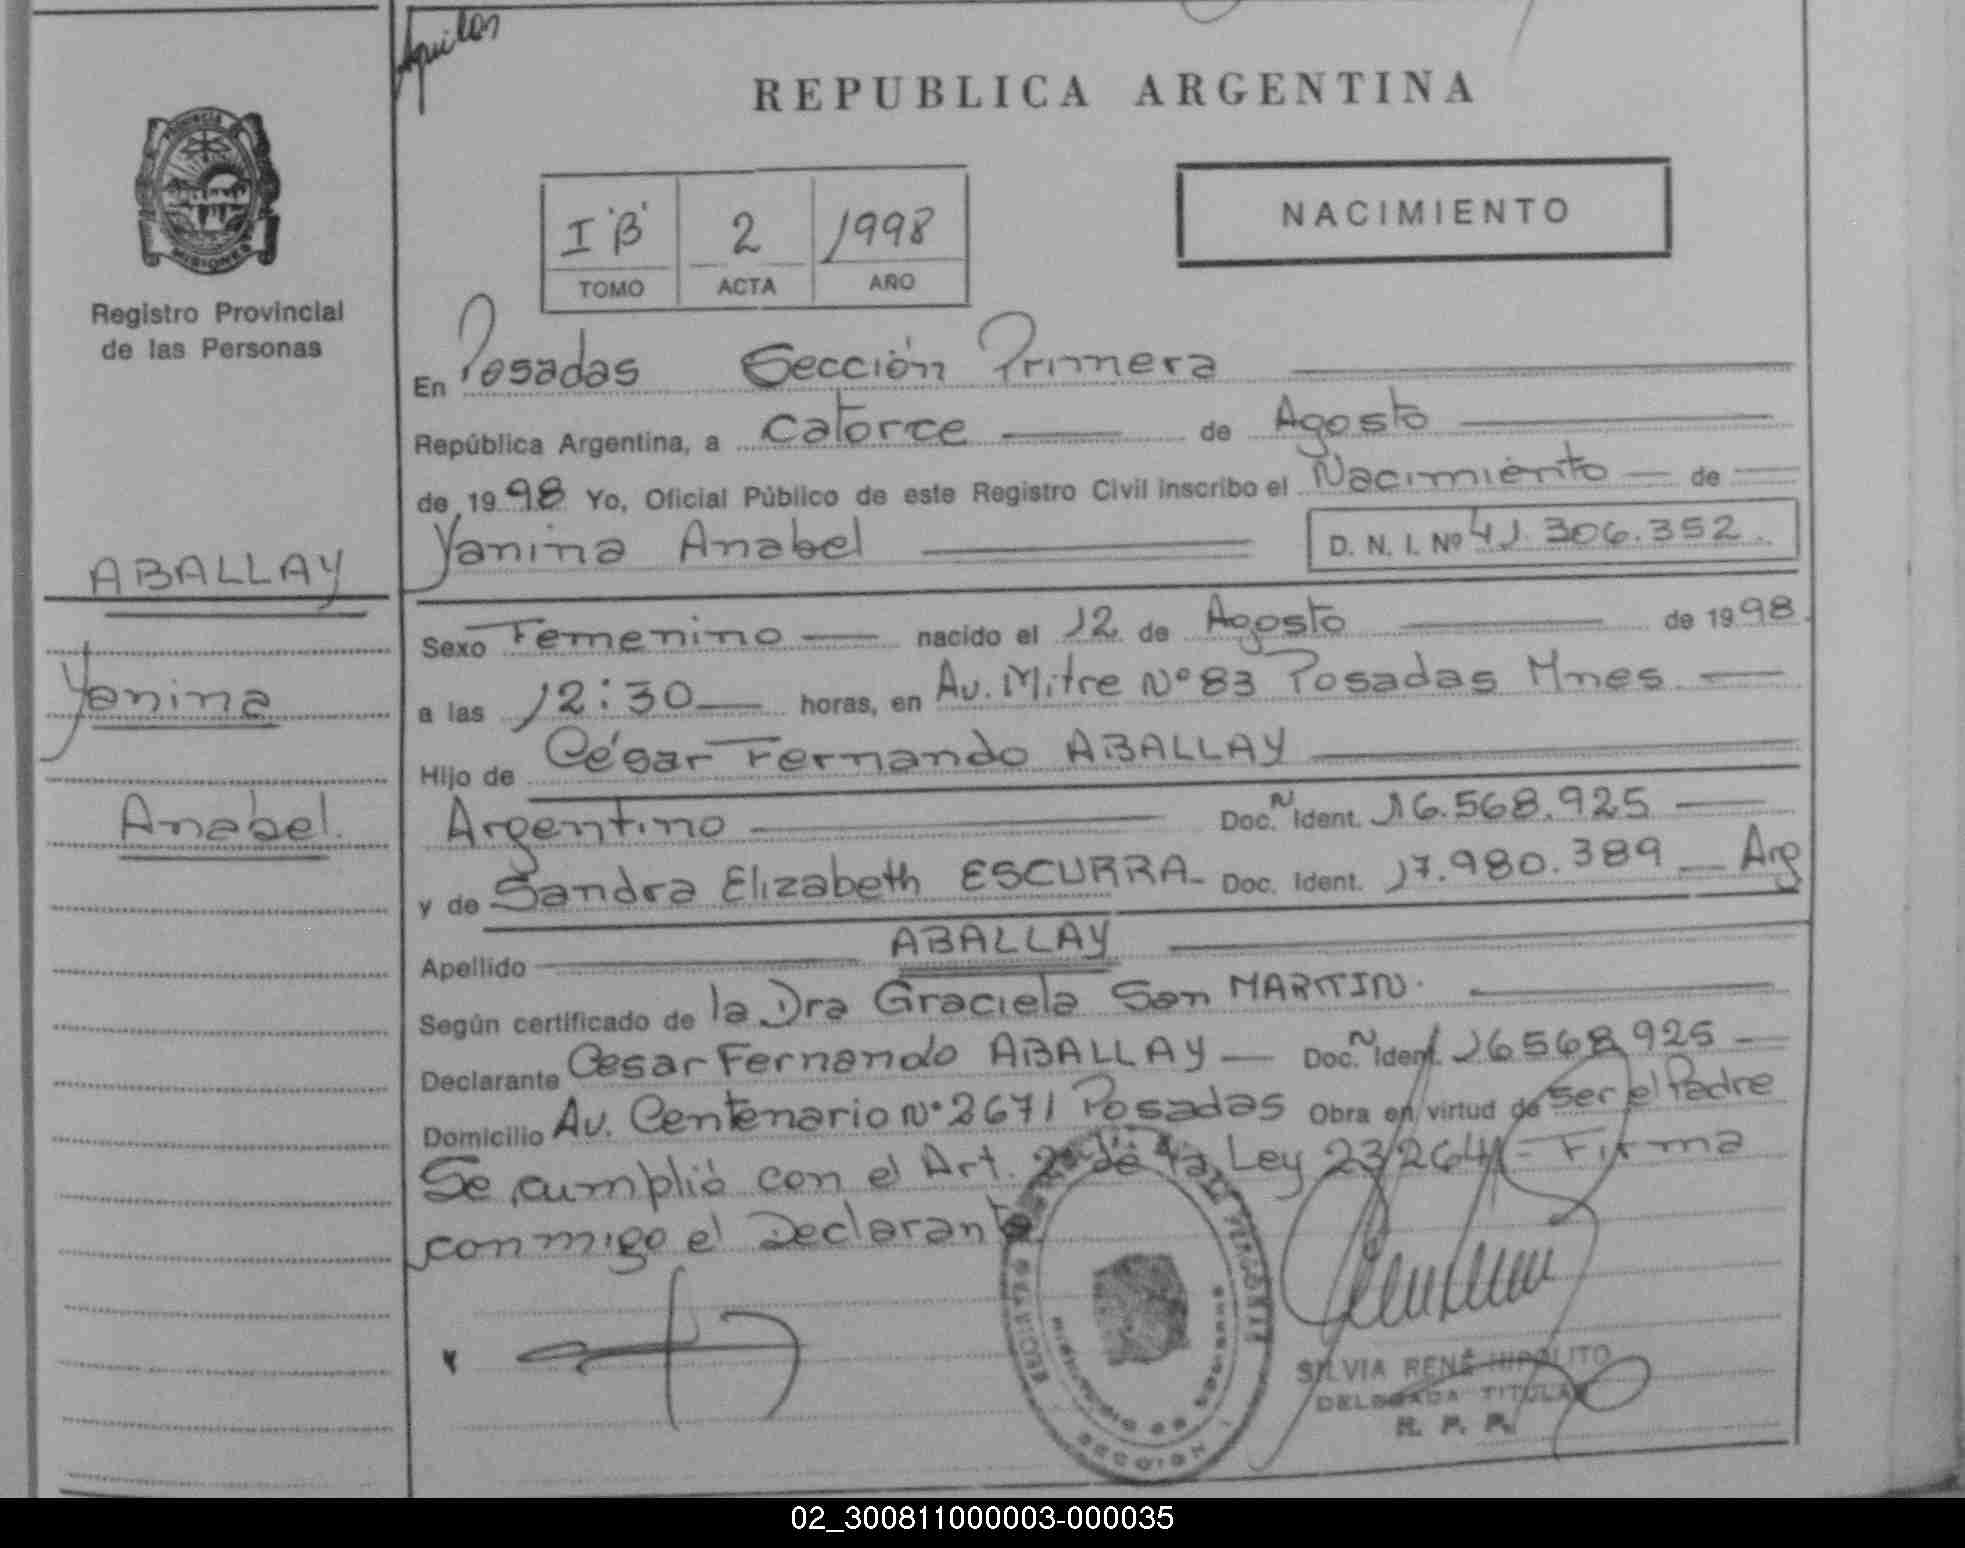 Aguilar
REPUBLICA ARGENTINA
PROVINCIA DE
MISIONES
Registro Provincial
de las Personas
I "B" 2 1998
TOMO ACTA AÑO
NACIMIENTO
En Posadas Sección Primera
República Argentina, a catorce de Agosto
de 1998 Yo, Oficial Público de este Registro Civil inscribo el Nacimiento de
Yanina Anabel D. N. I. Nº 41.306.352.
ABALLAY
Yanina
Anabel.
Sexo Femenino nacido el 12 de Agosto de 1998.
a las 12:30 horas, en Av. Mitre Nº 83 Posadas Mnes
Hijo de César Fernando ABALLAY
Argentino Doc. N Ident. 16.568.925
y de Sandra Elizabeth ESCURRA Doc. Ident. 17.980.389 Arg
Apellido ABALLAY
Según certificado de la Dra Graciela San MARTIN.
Declarante Cesar Fernando ABALLAY Doc. N Ident. 16568925
Domicilio Av. Centenario Nº 2671 Posadas Obra en virtud de ser el Padre
Se cumplió con el Art. 2º de la Ley 23264 - Firma
conmigo el Declarante
SILVIA RENÉ HIPOLITO
DELEGADA TITULAR
R. P. P.
SECCION 1
02_300811000003-000035